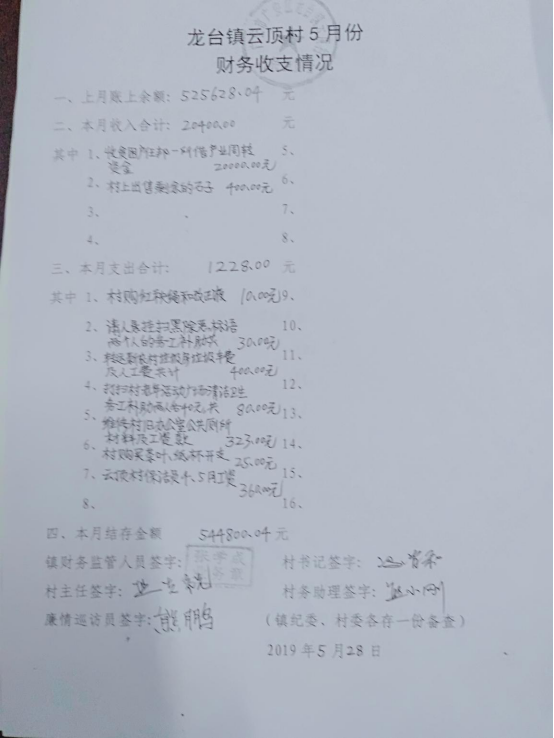 龙台镇云顶村5月份
财务收支情况
一、上月账上余额: 525628.04 元
二、本月收入合计: 20400.00 元
其中 1、收贫困户任初一科借产业周转 5、
资金 20000.00元
2、村上出售剩余的石子 400.00元 6、
3、 7、
4、 8、
三、本月支出合计: 1228.00 元
其中 1、村购红秧绳和改正液 10.00元 9、
2、请人悬挂扫黑除恶标语 10、
两个人的务工补助共 30.00元
3、转运新农村垃圾车垃圾车费 11、
及人工费共计 400.00元
4、打扫村老年活动广场清洁卫生 12、
务工补助两人各40元,共 80.00元 13、
5、维修村旧办公室公共厕所
材料及工资款 323.00元 14、
6、村购买茶叶、纸杯开支 25.00元
7、云顶村保洁员4、5月工资 15、
360.00元
8、 16、
四、本月结存金额 544800.04 元
镇财务监管人员签字: 村书记签字:
村主任签字: 村务助理签字:
廉情巡访员签字: 熊鹏 (镇纪委、村委各存一份备查)
2019年5月28日